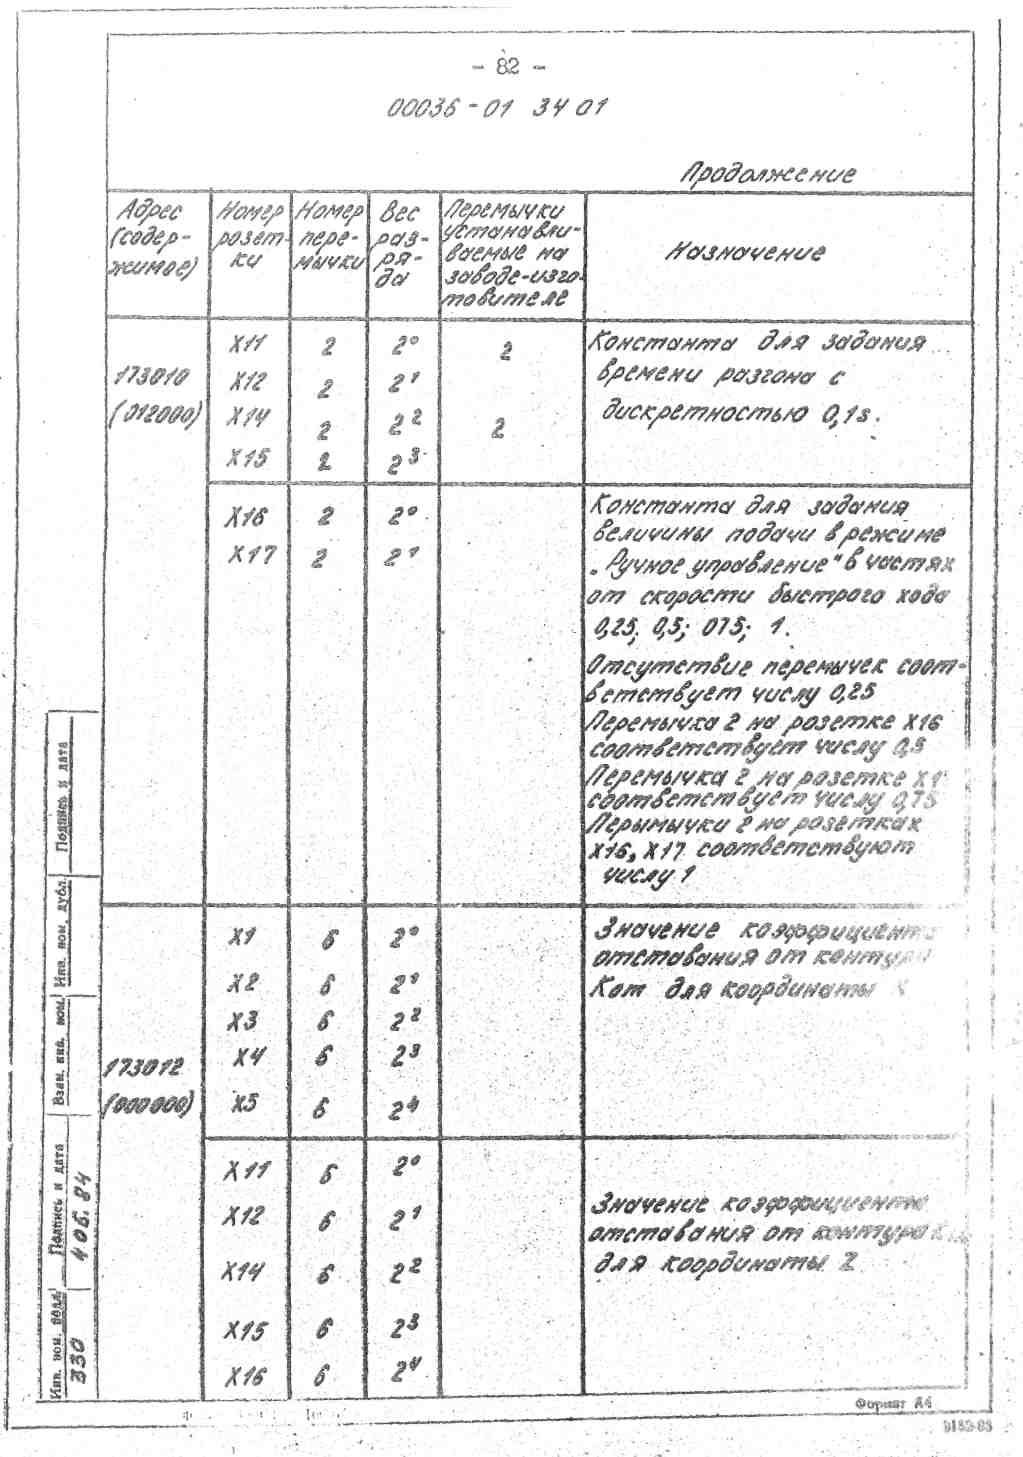 - 82 -
00036-01 34 01
Продолжение
Адрес (содер- жимое)
Номер розет- ки
Номер пере- мычки
Вес раз- ря- да
Перемычки устанавли- ваемые на заводе-изго- товителе
Назначение
173010
(012000)
X11 2 2⁰ 2
X12 2 2¹
X14 2 2² 2
X15 2 2³
Константа для задания
времени разгона с
дискретностью 0,1s.
X16 2 2⁰
X17 2 2¹
Константа для задания
величины подачи в режиме
„Ручное управление" в частях
от скорости быстрого хода
0,25; 0,5; 075; 1.
Отсутствие перемычек соот-
ветствует числу 0,25
Перемычка 2 на розетке X16
соответствует числу 0,5
Перемычка 2 на розетке X1
соответствует числу 0,75
Перымычки 2 на розетках
X16, X17 соответствуют
числу 1
173012
(000000)
X1 6 2⁰
X2 6 2¹
X3 6 2²
X4 6 2³
X5 6 2⁴
Значение коэффициента
отставания от контура
Кот для координаты X
X11 6 2⁰
X12 6 2¹
X14 6 2²
X15 6 2³
X16 6 2⁴
Значение коэффициента
отставания от контура
для координаты Z
Подпись и дата
Инв. ном. дубл.
Взам. инв. ном.
Подпись и дата
4 06. 84
Инв. ном. подл.
330
Формат А4
9182-83